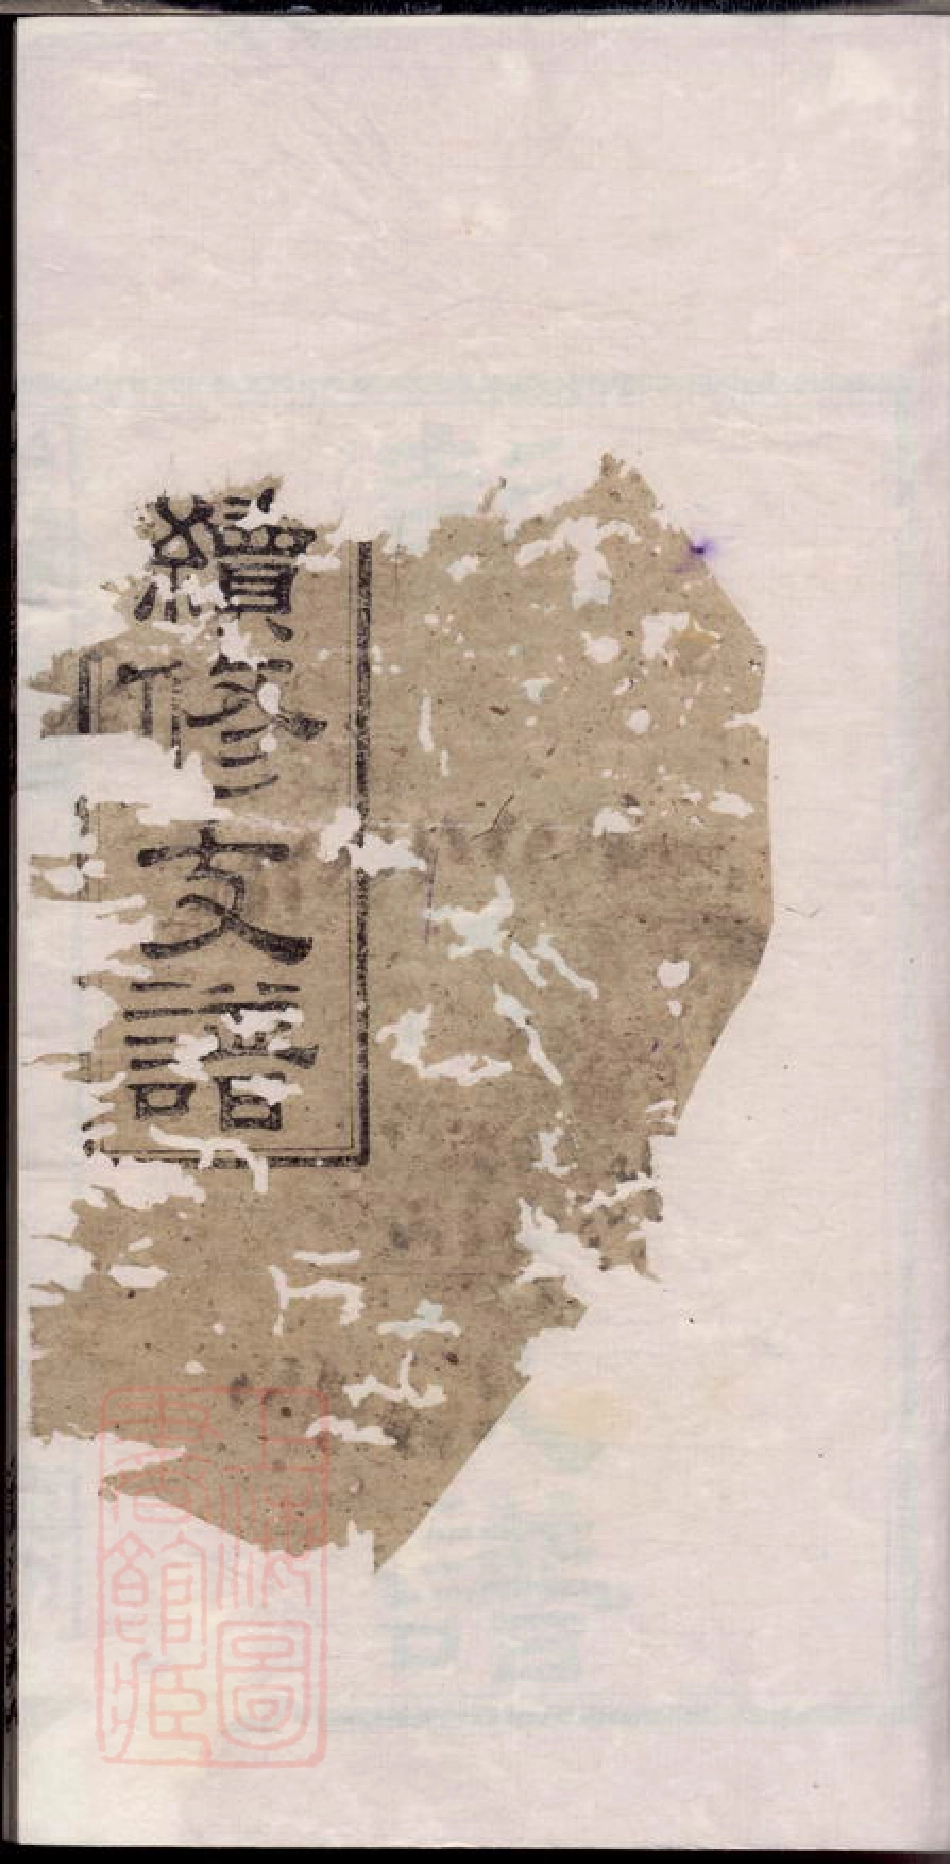 續修支譜
上海圖書館藏